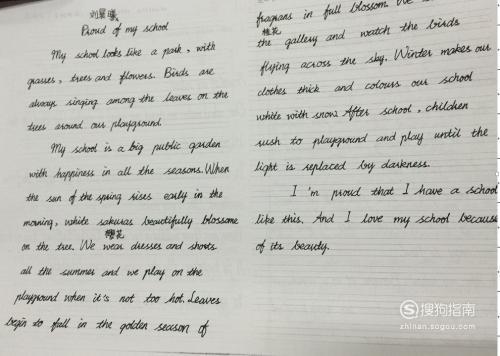 刘景曦
Proud of my school
My school looks like a park, with
grasses, trees and flowers. Birds are
always singing among the leaves on the
trees around our playground.
My school is a big public garden
with happiness in all the seasons. When
the sun of the spring rises early in the
morning, white sakuras beautifully blossome
樱花
on the tree. We wear dresses and shorts
all the summer and we play on the
playground when it's not too hot. Leaves
begin to fall in the golden season of
fragrans in full blossom. We
桂花
the gallery and watch the birds
flying across the sky. Winter makes our
clothes thick and colours our school
white with snow. After school, children
rush to playground and play until the
light is replaced by darkness.
I'm proud that I have a school
like this. And I love my school because
of its beauty.
搜狗指南
zhinan.sogou.com